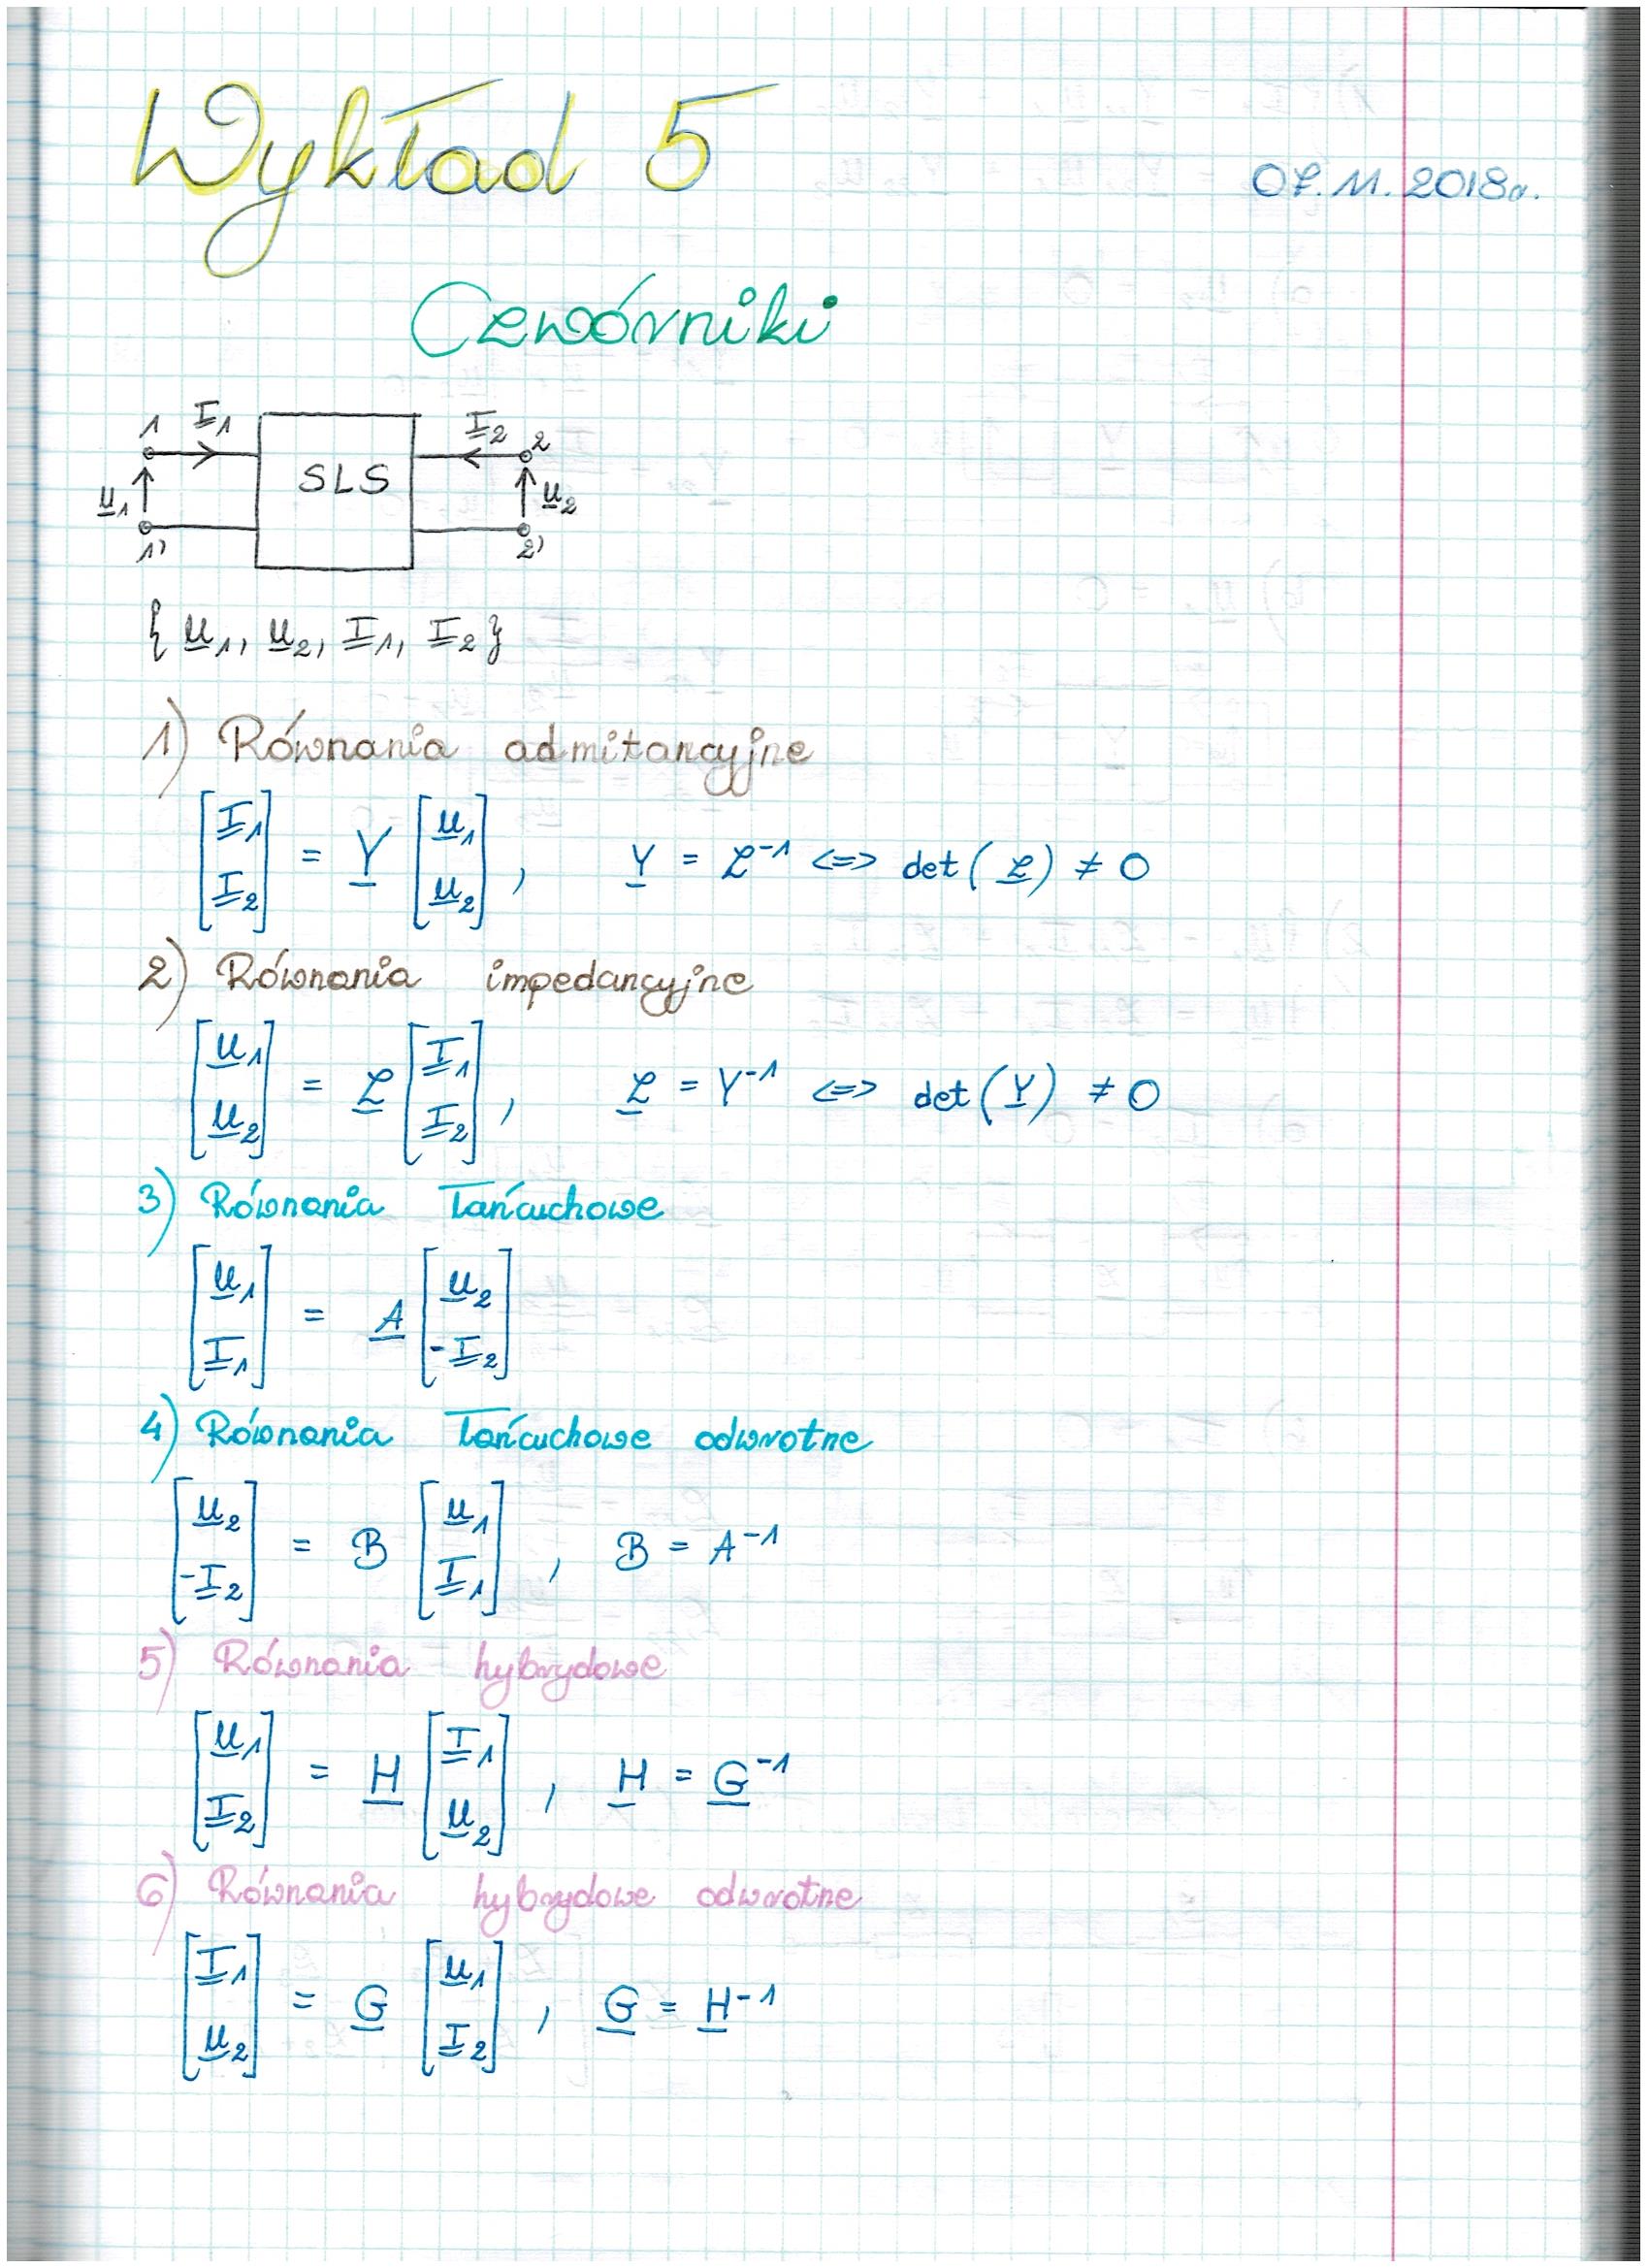 Wykład 5
07.11.2018r.
Czwórniki
1 I1 I2 2
SLS
U1 U2
1' 2'
{ U1, U2, I1, I2 }
1) Równania admitancyjne
[I1 I2] = Y [U1 U2], Y = Z⁻¹ <=> det(Z) ≠ 0
2) Równania impedancyjne
[U1 U2] = Z [I1 I2], Z = Y⁻¹ <=> det(Y) ≠ 0
3) Równania łańcuchowe
[U1 I1] = A [U2 -I2]
4) Równania łańcuchowe odwrotne
[U2 -I2] = B [U1 I1], B = A⁻¹
5) Równania hybrydowe
[U1 I2] = H [I1 U2], H = G⁻¹
6) Równania hybrydowe odwrotne
[I1 U2] = G [U1 I2], G = H⁻¹